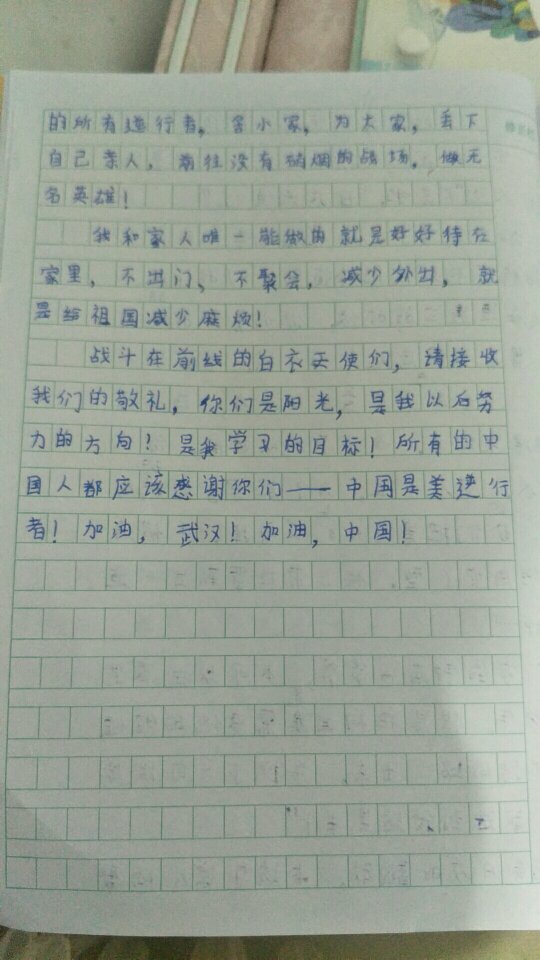 的所有逆行者，舍小家，为大家，丢下
自己亲人，前往没有硝烟的战场，做无
名英雄！
我和家人唯一能做的就是好好待在
家里，不出门，不聚会，减少外出，就
是给祖国减少麻烦！
战斗在前线的白衣天使们，请接收
我们的敬礼，你们是阳光，是我以后努
力的方向！是我学习的目标！所有的中
国人都应该感谢你们——中国是美逆行
者！加油，武汉！加油，中国！